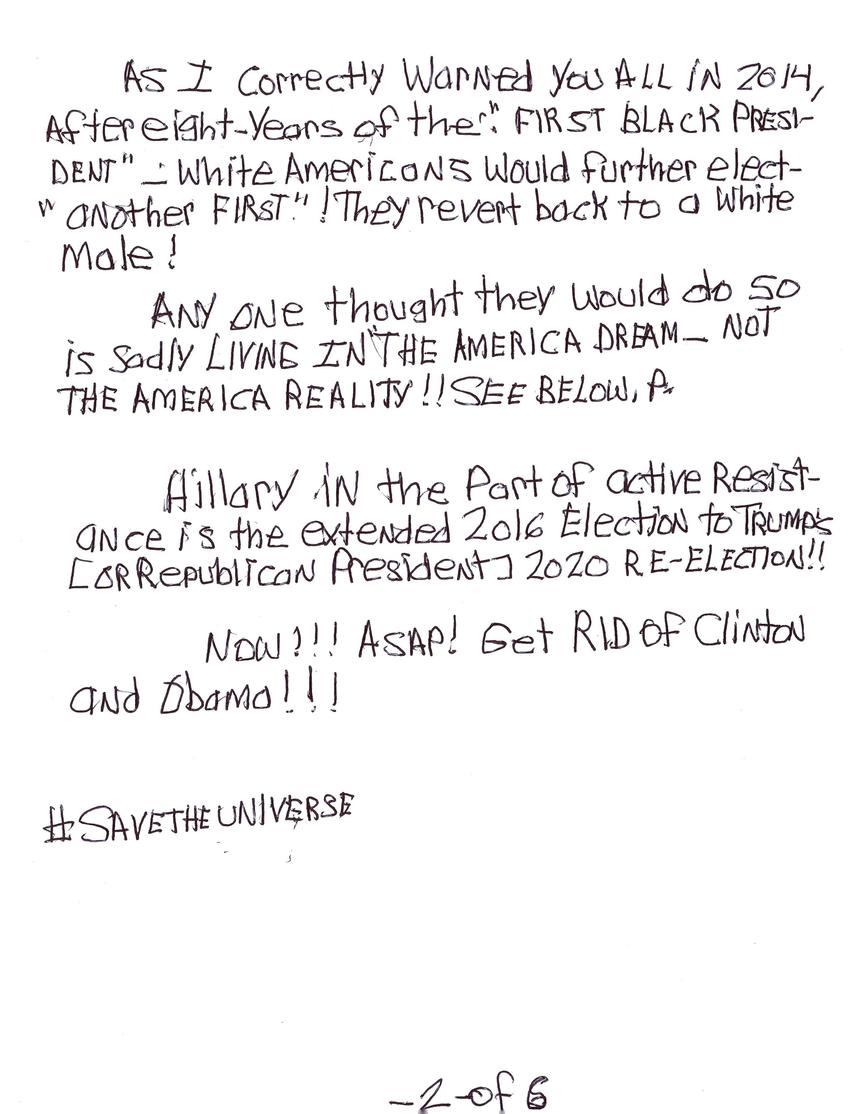 As I Correctly Warned You ALL IN 2014,
After eight-Years of the": FIRST BLACK PRESI-
DENT" - White Americans Would further elect-
"another FIRST."! They revert back to a White
Male!
ANY ONE thought they Would do SO
is Sadly LIVING IN "THE AMERICA DREAM- NOT
THE AMERICA REALITY!! SEE BELOW, A.
Hillary IN the Part of active Resist-
ance is the extended 2016 Election to TRUMP's
[OR Republican President] 2020 RE-ELECTION!!
NOW!!! ASAP! Get RID OF Clinton
and Obama!!!
#SAVETHEUNIVERSE
-2-of 6